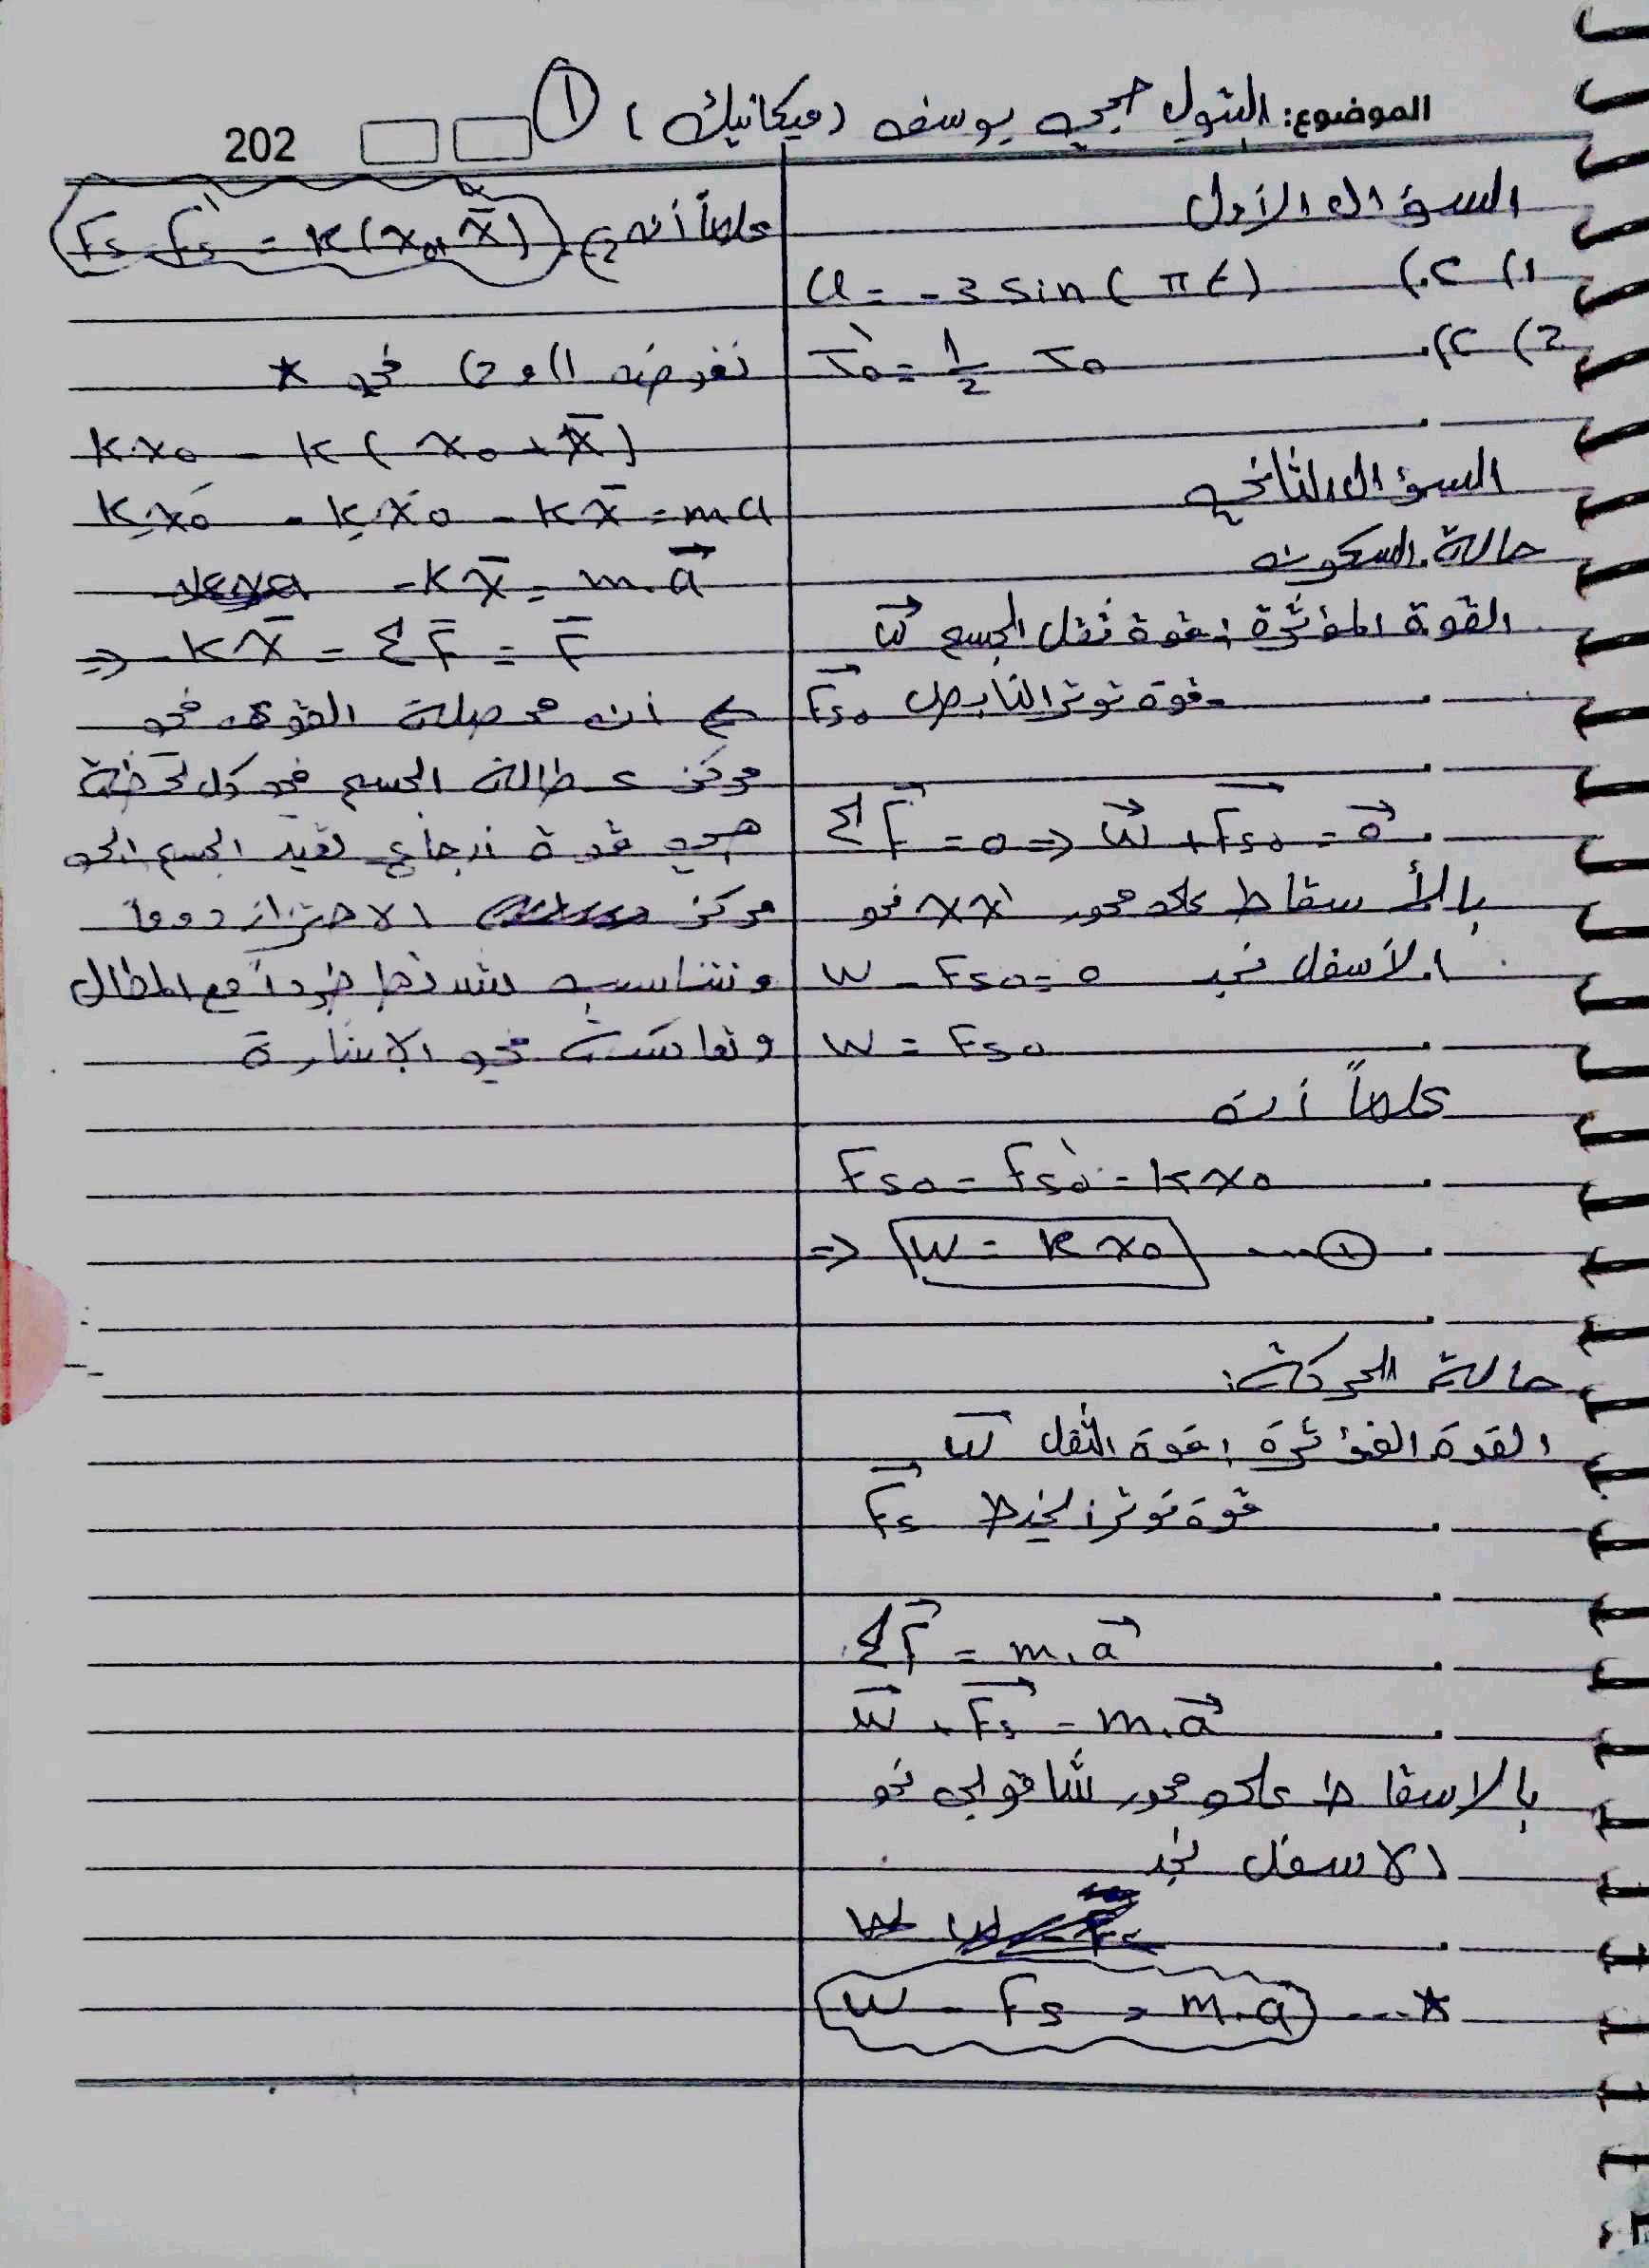 الموضوع: البتول يوسف (ميكانيك) ①
202
السؤال الأول
1) c). a = -3 sin (πt)
2) c). T₀` = 1/2 T₀
السؤال الثاني
حالة السكون
القوة المؤثرة: قوة ثقل الجسم W⃗
قوة توتر النابض F⃗s₀
ΣF⃗ = 0 => W⃗ + F⃗s₀ = 0⃗
بالأسقاط على محور xx` نحو
الأسفل نجد W - Fs₀ = 0
W = Fs₀
علماً أن
Fs₀ = Fs₀` = kx₀
=> W = kx₀ ---- ①
حالة الحركة:
القوة المؤثرة: قوة الثقل W⃗
قوة توتر الخيط F⃗s
ΣF⃗ = m.a⃗
W⃗ + F⃗s = m.a⃗
بالاسقاط على محور شاقولي نحو
الاسفل نجد
W - Fs = m.a ---- *
علماً أن 2) Fs = Fs` = k(x₀ + x̄)
نعوض 1) و 2) في *
kx₀ - k(x₀ + x̄)
kx₀ - kx₀ - kx̄ = ma
-kx̄ = m.a⃗
=> -kx̄ = ΣF̄ = F̄
أن محصلة القوى في
مركز عطالة الجسم في كل لحظة
هي قوة إرجاع تعيد الجسم الى
مركز الاهتزاز دوماً
وتتناسب شدتها طرداً مع المطال
وتعاكسه في الإشارة